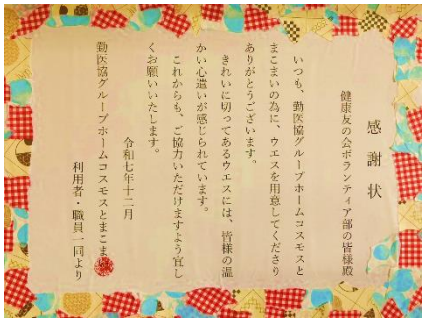 感謝状
健康友の会ボランティア部の皆様殿
いつも、勤医協グループホームコスモスと
まこまいの為に、ウエスを用意してくださり
ありがとうございます。
きれいに切ってあるウエスには、皆様の温
かい心遣いが感じられています。
これからも、ご協力いただけますよう宜し
くお願いいたします。
令和七年十二月
勤医協グループホームコスモスとまこまい
利用者・職員一同より